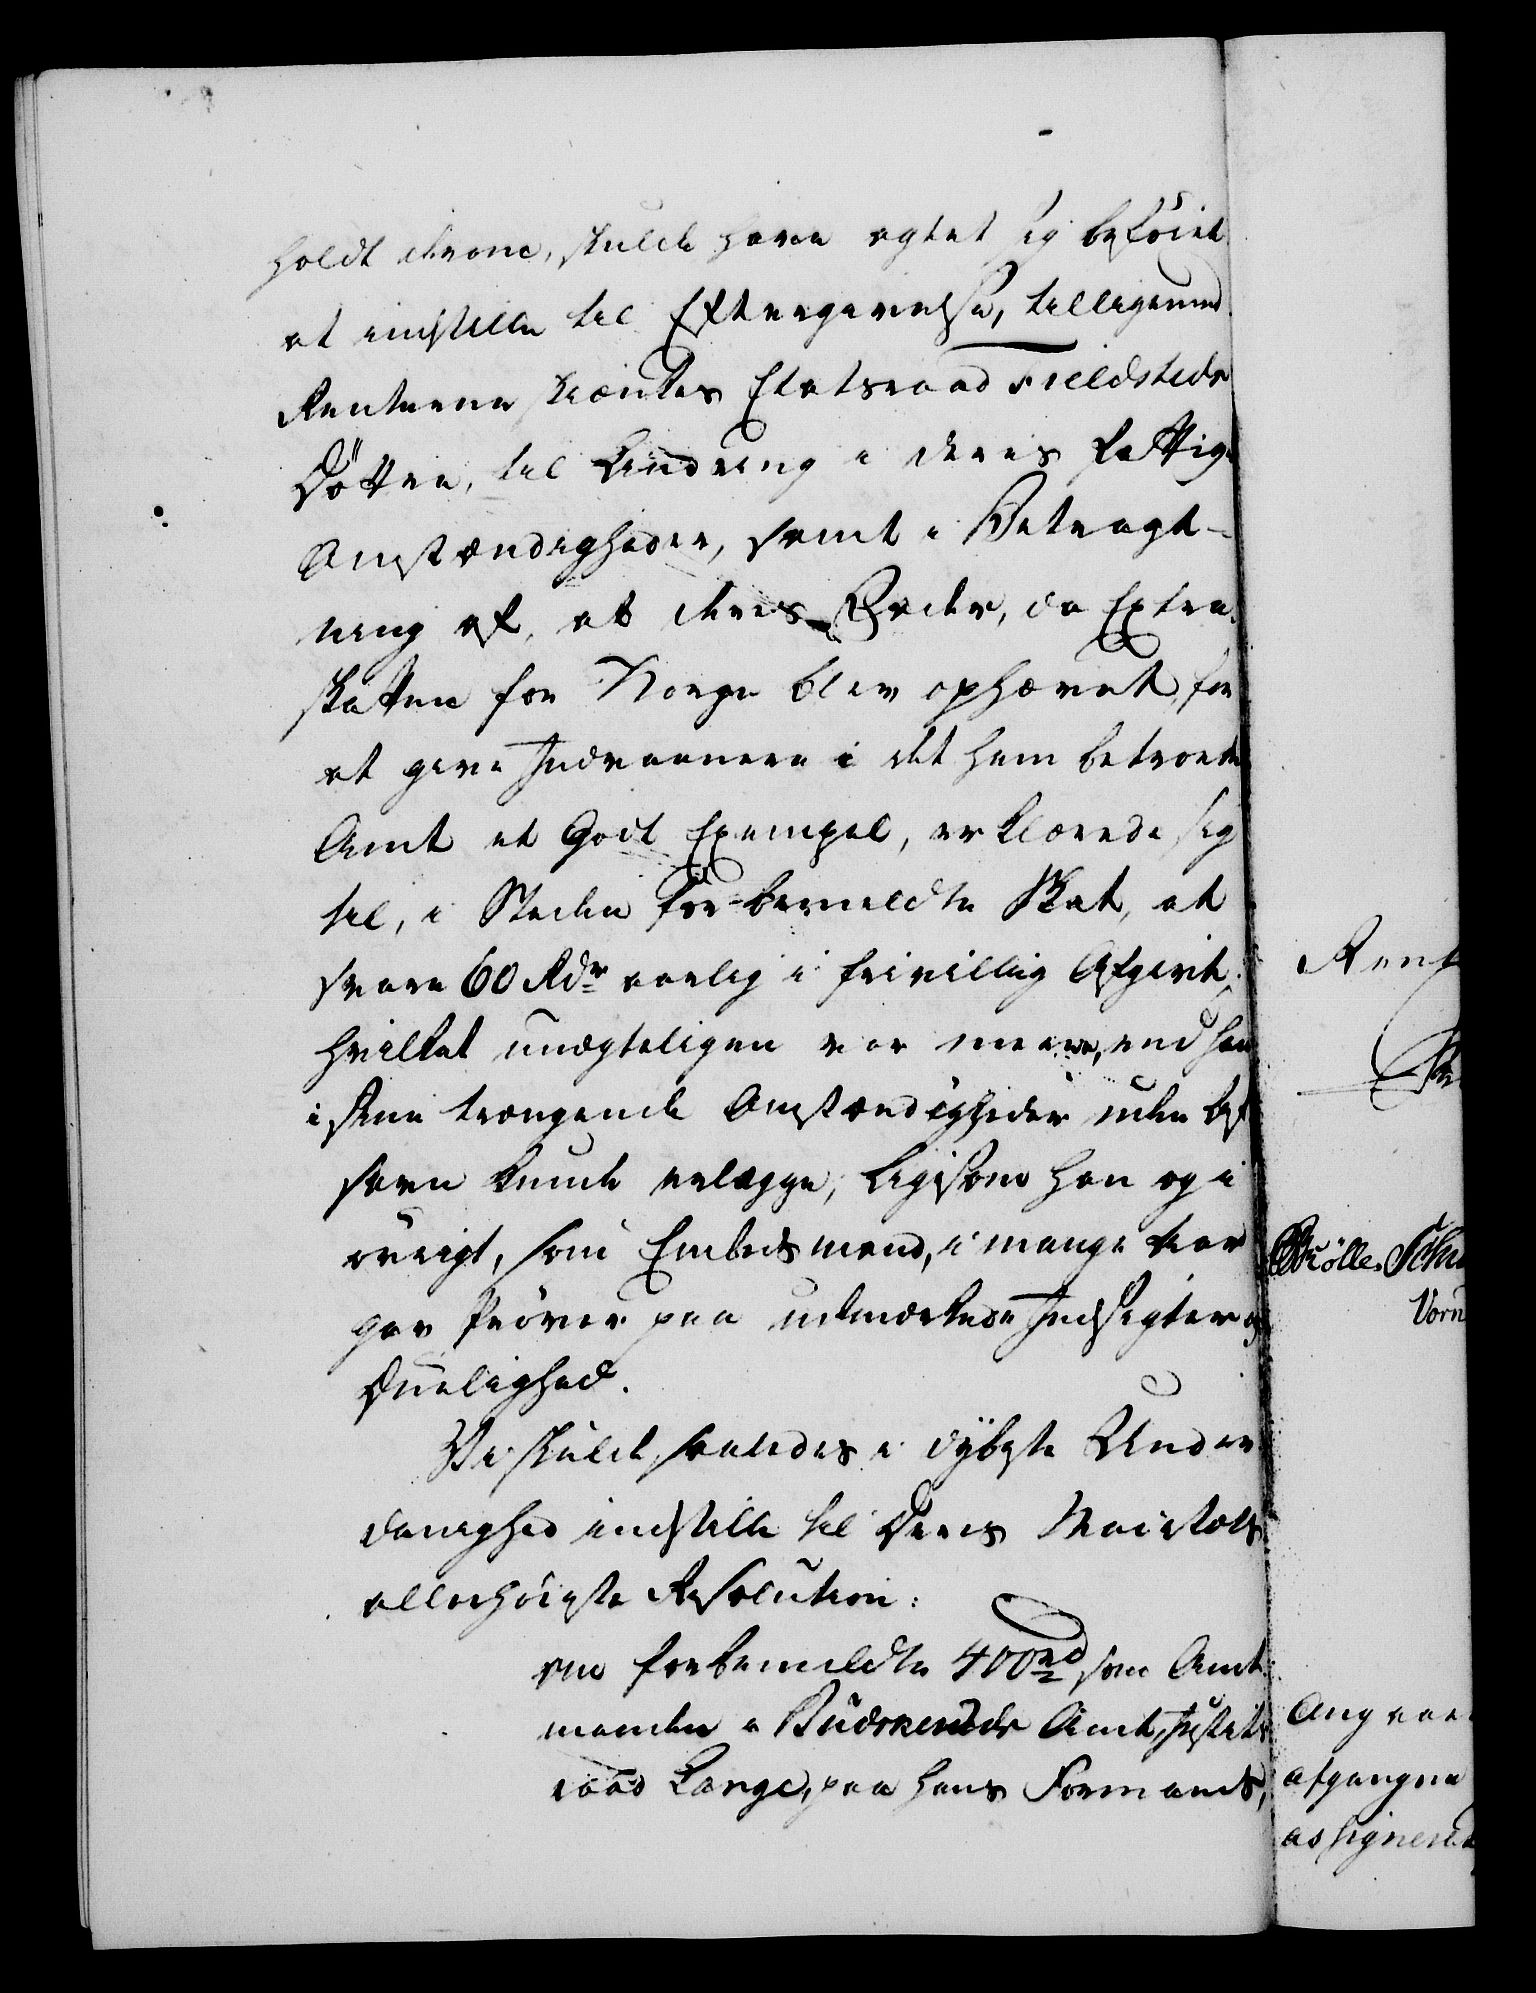 holdt derone, skulde have agtet sig beföiet
at indstille til Eftergivelse, tilligemed
Renterne skiænkes Etatsraad Fieldsteds
Döttre, til Lindring i deres fattige
Omstændigheder, samt i Betragt-
ning af, at deres Fader, da Extra
skatten for Norge blev ophævet, for
at give Indvaanere i det ham betroede
Amt et godt Exempel, erklærede sig
til, i Steden for bemeldte Skat, at
svare 60 Rdr aarlig i frivillig Afgivt;
hvilket unægteligen var meere, end han
i sine trængende Omstændigheder uden
savn kunde erlægge, ligesom han og i
övrigt, som Embedsmand, i mange Aar
gav Pröver paa udmærkede Indsigter og
Duelighed.
Vi skulde saaledes i dybeste Under
danighed indstille til Deres Maiestæts
allerhöieste Resolution:
om forbemeldte 400 rd som Amt
manden i Budskeruds Amt, Justits
raad Lange, paa hans Formands,
Rent
Möller. Schu
Vorn
Angaae
afgangne
assigneret